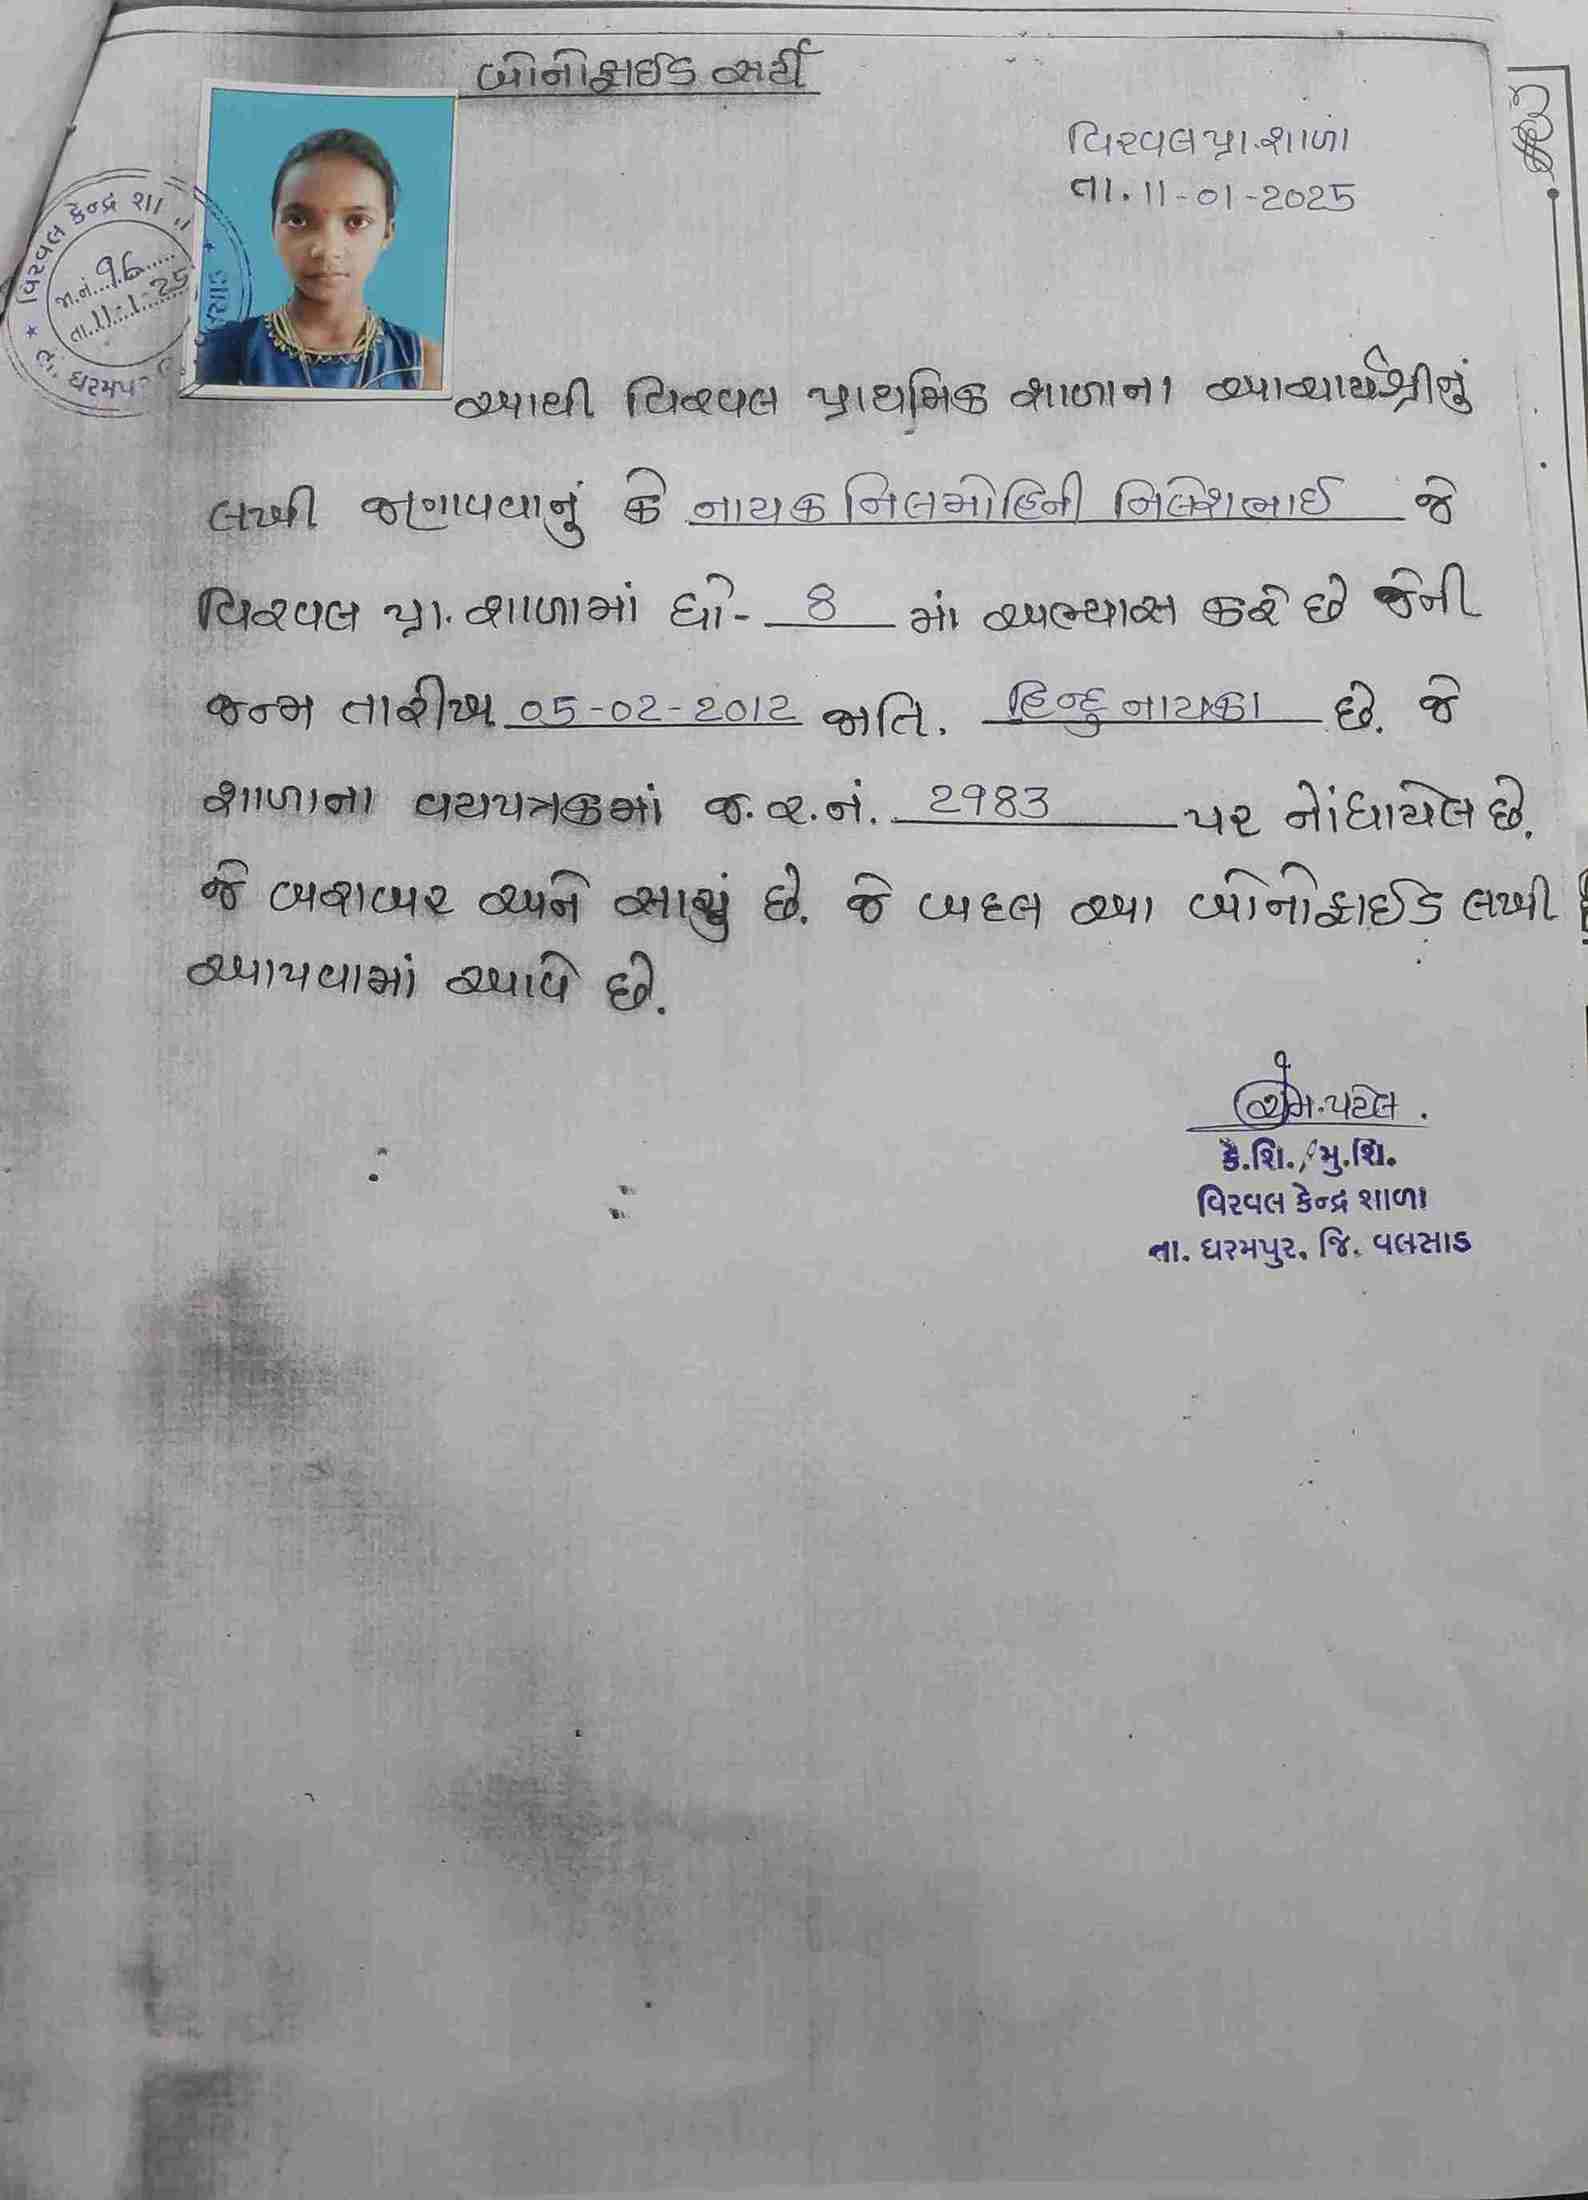 બોનોફાઈડ સર્ટી
વિરવલ પ્રા.શાળા
તા. 11-01-2025
વિરવલ કેન્દ્ર શા
જા.નં. ૧૬
તા. 11-1-25
આથી વિરવલ પ્રાથમિક શાળાના આચાર્યશ્રીનું
લખી જણાવવાનું કે નાયક નિલમોહિની નિલેશભાઈ જે
વિરવલ પ્રા. શાળામાં ધો- 8 માં અભ્યાસ કરે છે જેની
જન્મ તારીખ 05-02-2012 જાતિ. હિન્દુ નાયકા છે. જે
શાળાના વયપત્રકમાં જ.ર.નં. 2983 પર નોંધાયેલ છે.
જે બરાબર અને સાચું છે. જે બદલ આ બોનોફાઈડ લખી
આપવામાં આવે છે.
એમ.પટેલ.
કે.શિ./મુ.શિ.
વિરવલ કેન્દ્ર શાળા
તા. ધરમપુર. જિ. વલસાડ